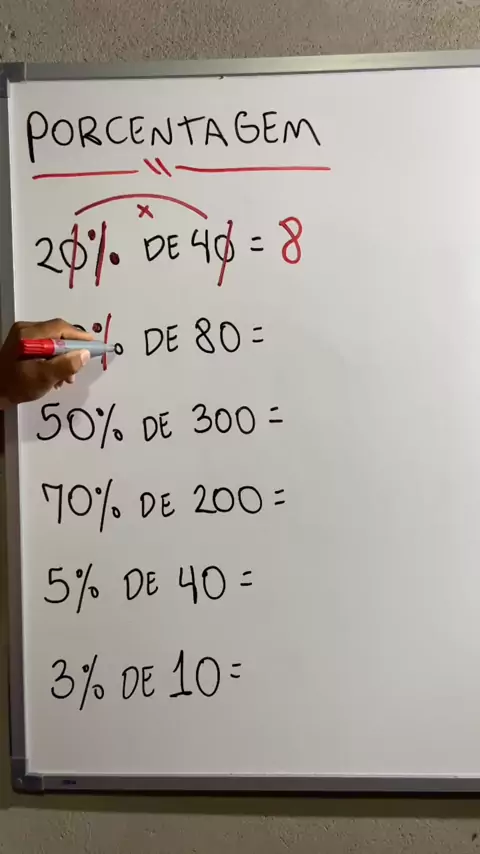 PORCENTAGEM
20% DE 40 = 8
% DE 80 =
50% DE 300 =
70% DE 200 =
5% DE 40 =
3% DE 10 =